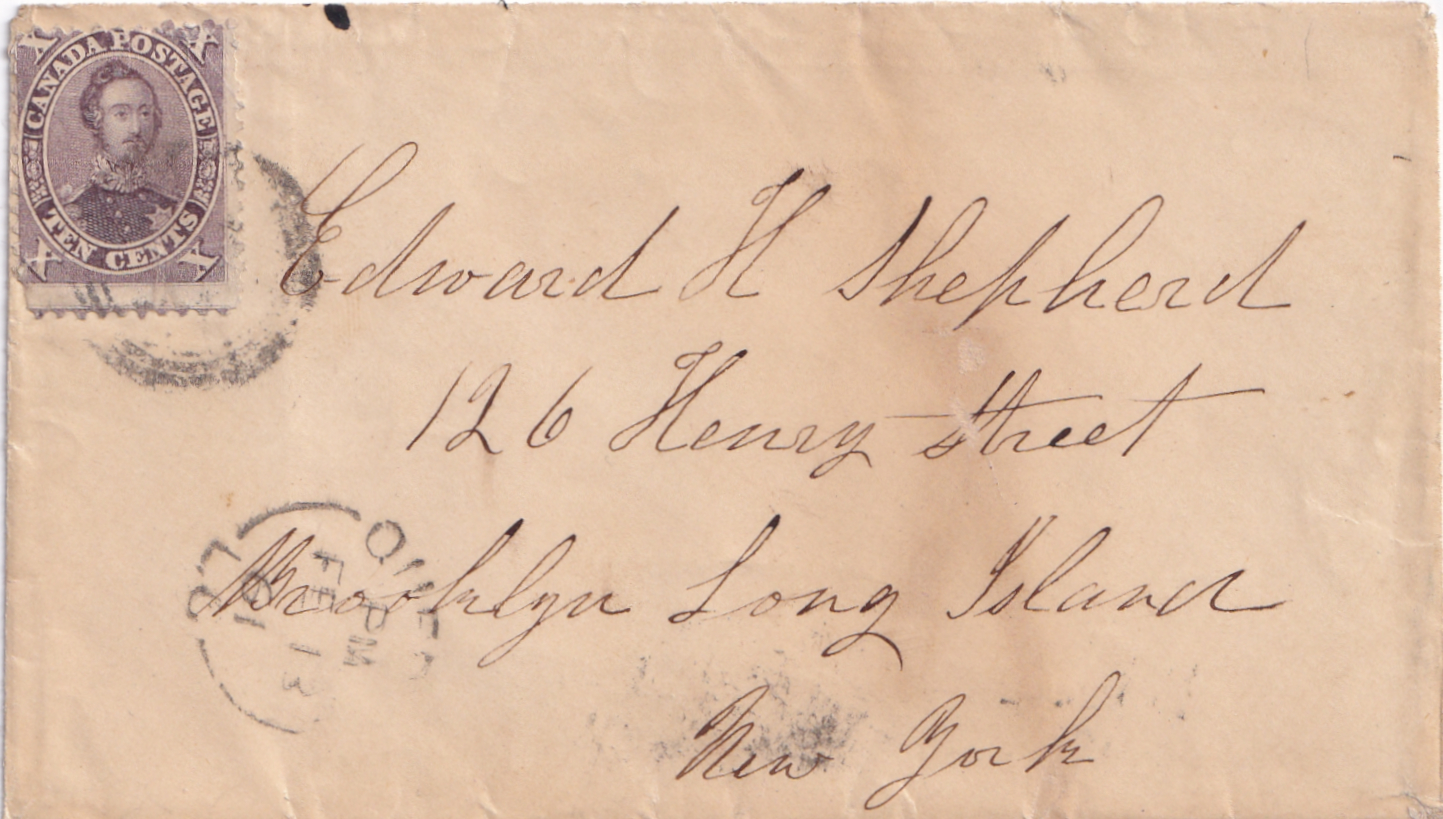 X CANADA POSTAGE X
X TEN CENTS X
Edward H Shepherd
126 Henry Street
Brooklyn Long Island
New York
PM
FE 13